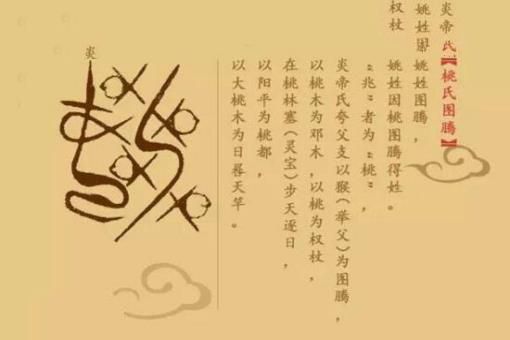 炎帝氏【桃氏图腾】
姚姓
姚姓图腾，
权杖
姚姓因桃图腾得姓。
“兆”者为“桃”，
炎帝氏夸父支以猴（举父）为图腾，
以桃木为邓木，以桃为权杖，
在桃林塞（灵宝）步天逐日，
以阳平为桃都，
以大桃木为日晷天竿。
炎